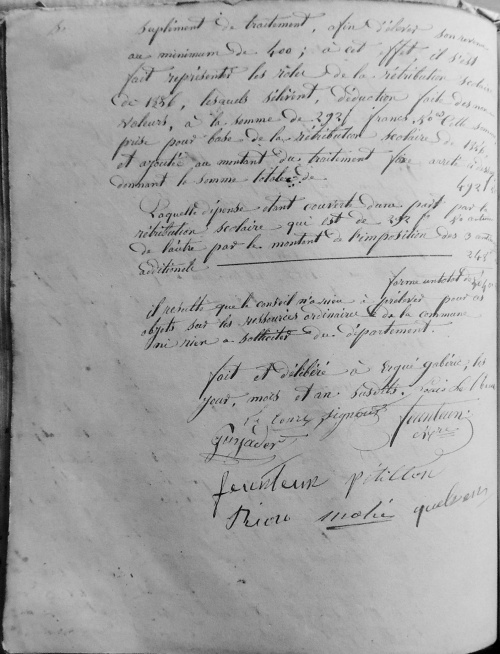 suplément de traitement, afin d'élever son revenu
au minimum de 400; à cet effet il s'est
fait représenter les rôles de la rétribution scolaire
de 1846, lesquels s'élèvent, déduction faite des non
valeurs, à la somme de 292 francs 40 cette somme
prise pour base de la rétribution scolaire de
et ajoutée au montant du traitement fixe
donnant la somme totale de 492
Laquelle dépense étant couverte d'une part par la
rétribution scolaire qui est de 292
de l'autre par le montant de l'imposition des 3
additionels
forme un total de
il resulte que le conseil n'a rien à prélever pour ces
objets sur les ressources ordinaires de la commune
ni rien a solliciter du département.
fait et délibéré à Ergué gabéric, les
jour, mois et an susdits.
signent
feunteun
feunteun pétillon
Riou mahé